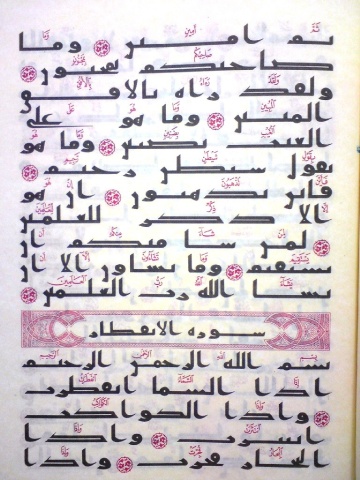 ثم امين وما
صاحبكم بمجنون
ولقد راه بالافق
المبين وما هو على
الغيب بضنين وما هو
بقول شيطن رجيم
فاين تذهبون ان هو
الا ذكر للعلمين
لمن شا منكم ان
يستقيم وما تشاون الا ان
يشا الله رب العلمين
سوره الانفطار
بسم الله الرحمن الرحيم
اذا السما انفطرت
واذا الكواكب
انتثرت واذا
البحار فجرت واذا